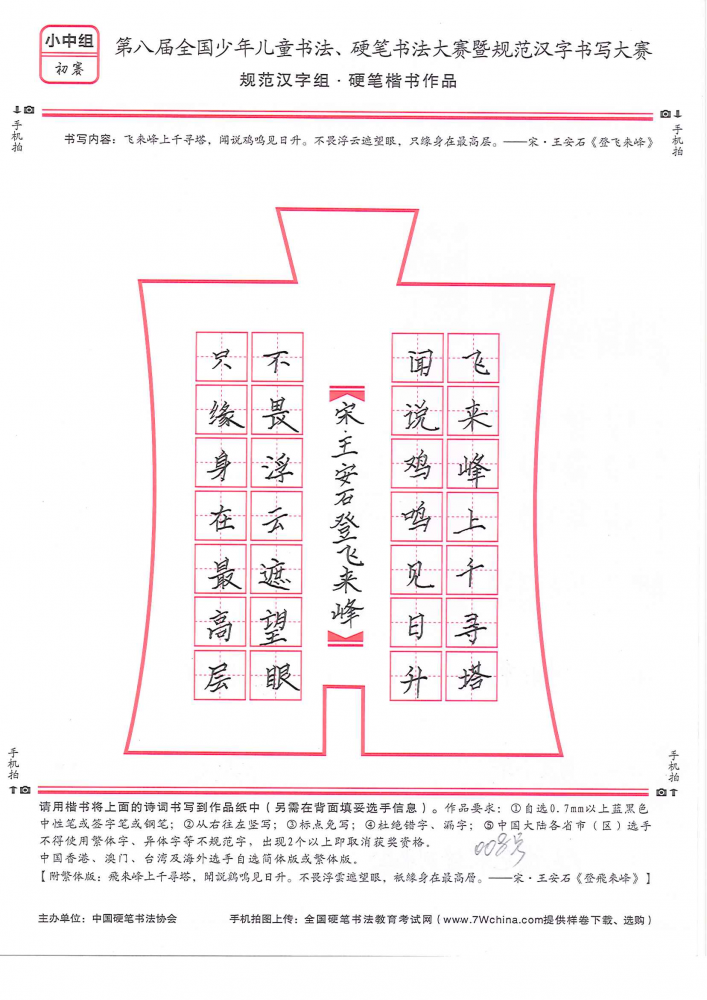 小中组
初赛
第八届全国少年儿童书法、硬笔书法大赛暨规范汉字书写大赛
规范汉字组·硬笔楷书作品
手机拍
手机拍
书写内容：飞来峰上千寻塔，闻说鸡鸣见日升。不畏浮云遮望眼，只缘身在最高层。——宋·王安石《登飞来峰》
飞来峰上千寻塔
闻说鸡鸣见日升
宋·王安石登飞来峰
不畏浮云遮望眼
只缘身在最高层
手机拍
手机拍
请用楷书将上面的诗词书写到作品纸中（另需在背面填妥选手信息）。作品要求：①自选0.7mm以上蓝黑色
中性笔或签字笔或钢笔；②从右往左竖写；③标点免写；④杜绝错字、漏字；⑤中国大陆各省市（区）选手
不得使用繁体字、异体字等不规范字，出现2个以上即取消获奖资格。
008号
中国香港、澳门、台湾及海外选手自选简体版或繁体版。
【附繁体版：飛來峰上千尋塔，聞說鷄鳴見日升。不畏浮雲遮望眼，祇緣身在最高層。——宋·王安石《登飛來峰》】
主办单位：中国硬笔书法协会
手机拍图上传：全国硬笔书法教育考试网（www.7Wchina.com提供样卷下载、选购）